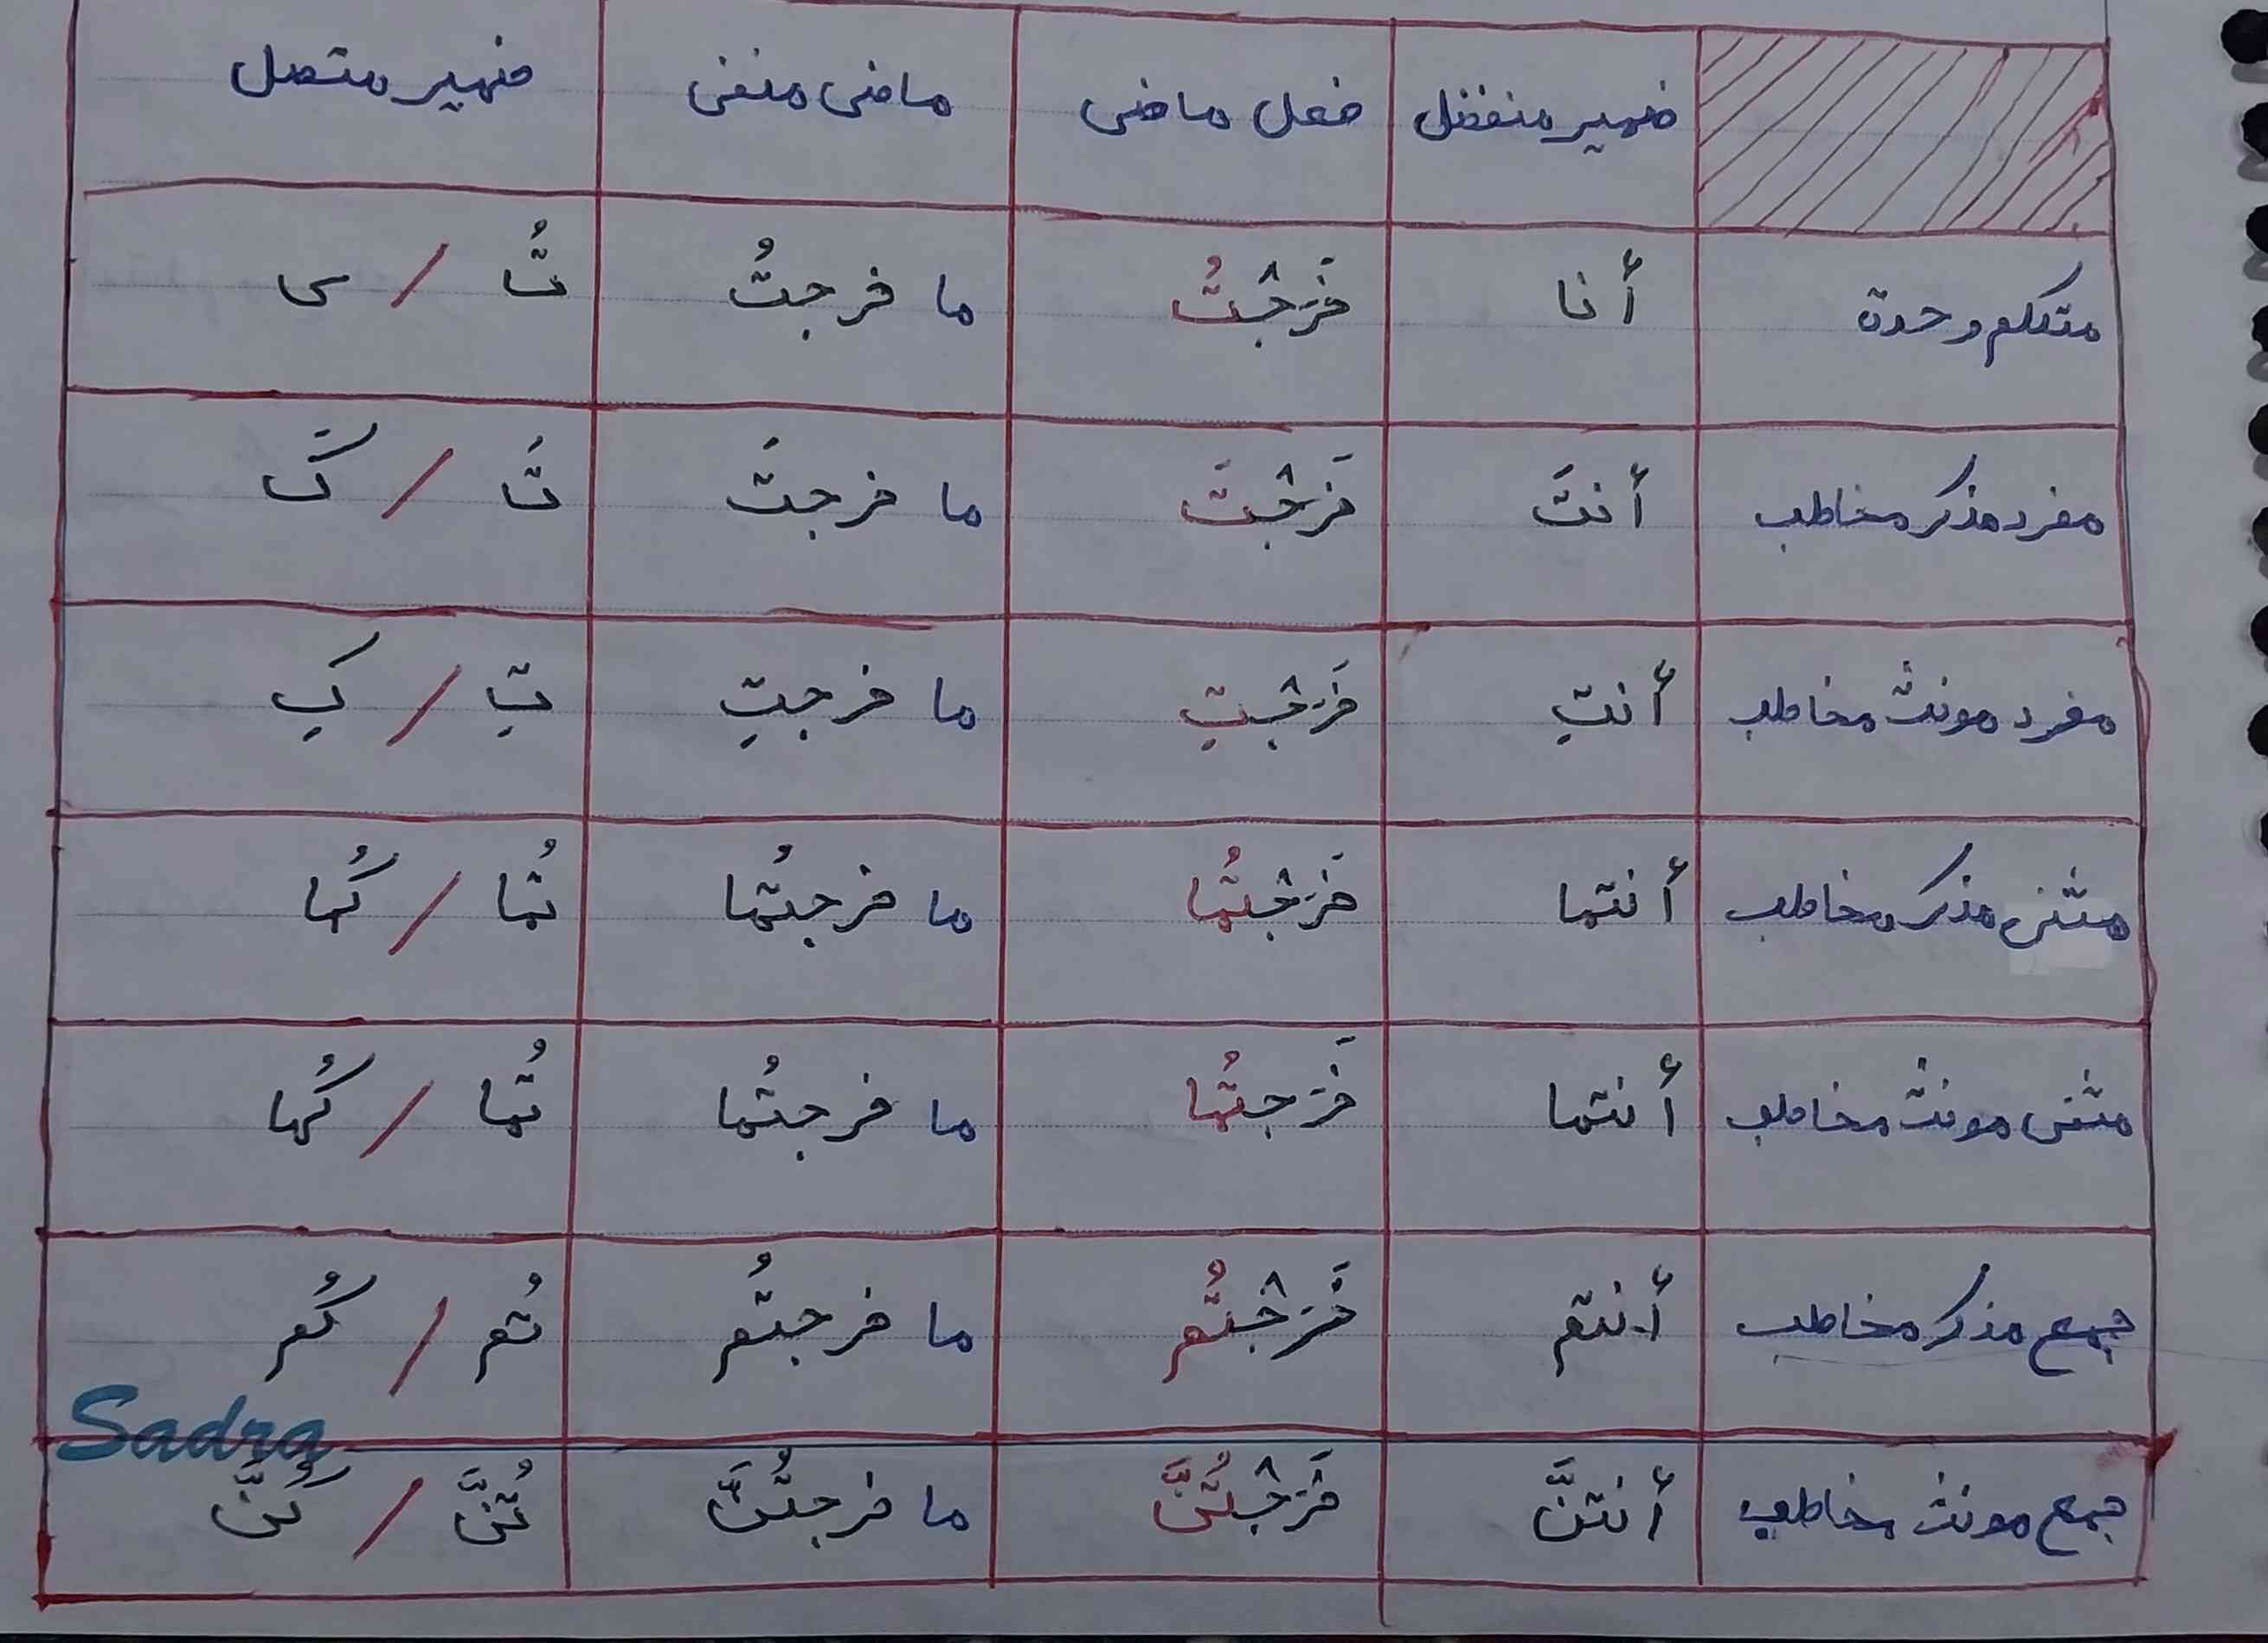 ضمیر منفضل فعل ماضی ماضی منفی ضمیر متصل
متکلم وحدة أنا فَرَجْتُ ما فرجتُ تُ / ی
مفرد مذکر مخاطب أنتَ فَرَجْتَ ما فرجتَ تَ / کَ
مفرد مونث مخاطب أنتِ فَرَجْتِ ما فرجتِ تِ / کِ
مثنی مذکر مخاطب أنتما فَرَجْتُما ما فرجتُما تُما / کُما
مثنی مونث مخاطب أنتما فَرَجتُما ما فرجتُما تُما / کُما
جمع مذکر مخاطب أنتم فَرَجْتُم ما فرجتُم تُم / کُم
Sadra
جمع مونث مخاطب أنتنَّ فَرَجْتُنَّ ما فرجتُنَّ تُنَّ / کُنَّ